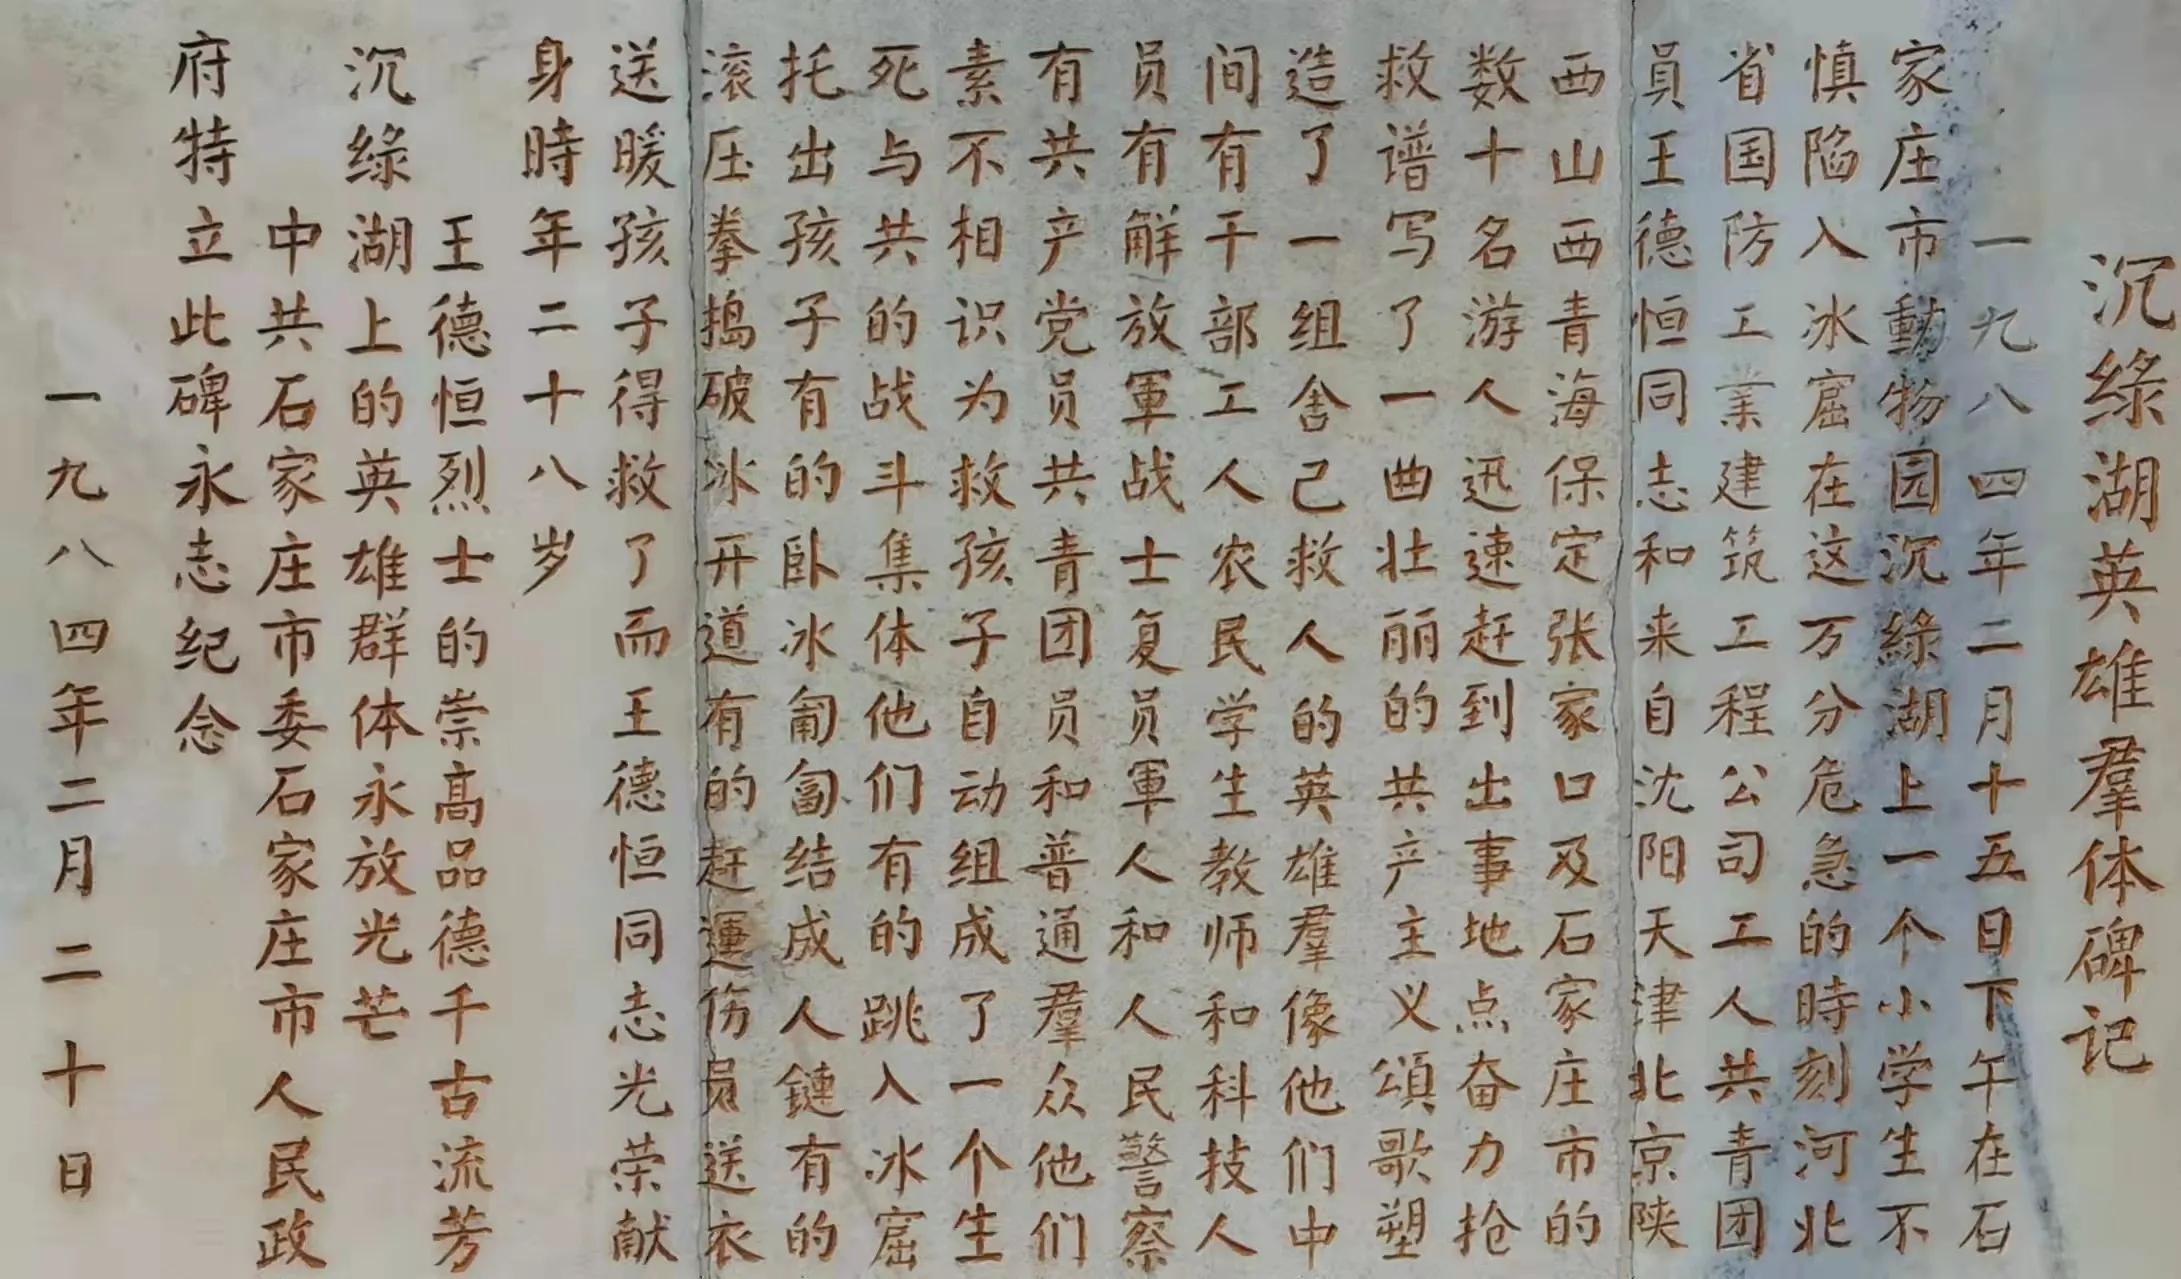 沉綠湖英雄羣体碑记
一九八四年二月十五日下午在石
家庄市動物园沉綠湖上一个小学生不
慎陷入冰窟在这万分危急的時刻河北
省国防工業建筑工程公司工人共青团
員王德恒同志和来自沈阳天津北京陕
西山西青海保定张家口及石家庄市的
数十名游人迅速赶到出事地点奋力抢
救谱写了一曲壮丽的共产主义頌歌塑
造了一组舍己救人的英雄羣像他们中
间有干部工人农民学生教师和科技人
员有解放軍战士复员軍人和人民警察
有共产党员共青团员和普通羣众他们
素不相识为救孩子自动组成了一个生
死与共的战斗集体他们有的跳入冰窟
托出孩子有的卧冰匍匐结成人鏈有的
滚压拳捣破冰开道有的赶運伤员送衣
送暖孩子得救了而王德恒同志光荣献
身時年二十八岁
王德恒烈士的崇高品德千古流芳
沉綠湖上的英雄群体永放光芒
中共石家庄市委石家庄市人民政
府特立此碑永志纪念
一九八四年二月二十日